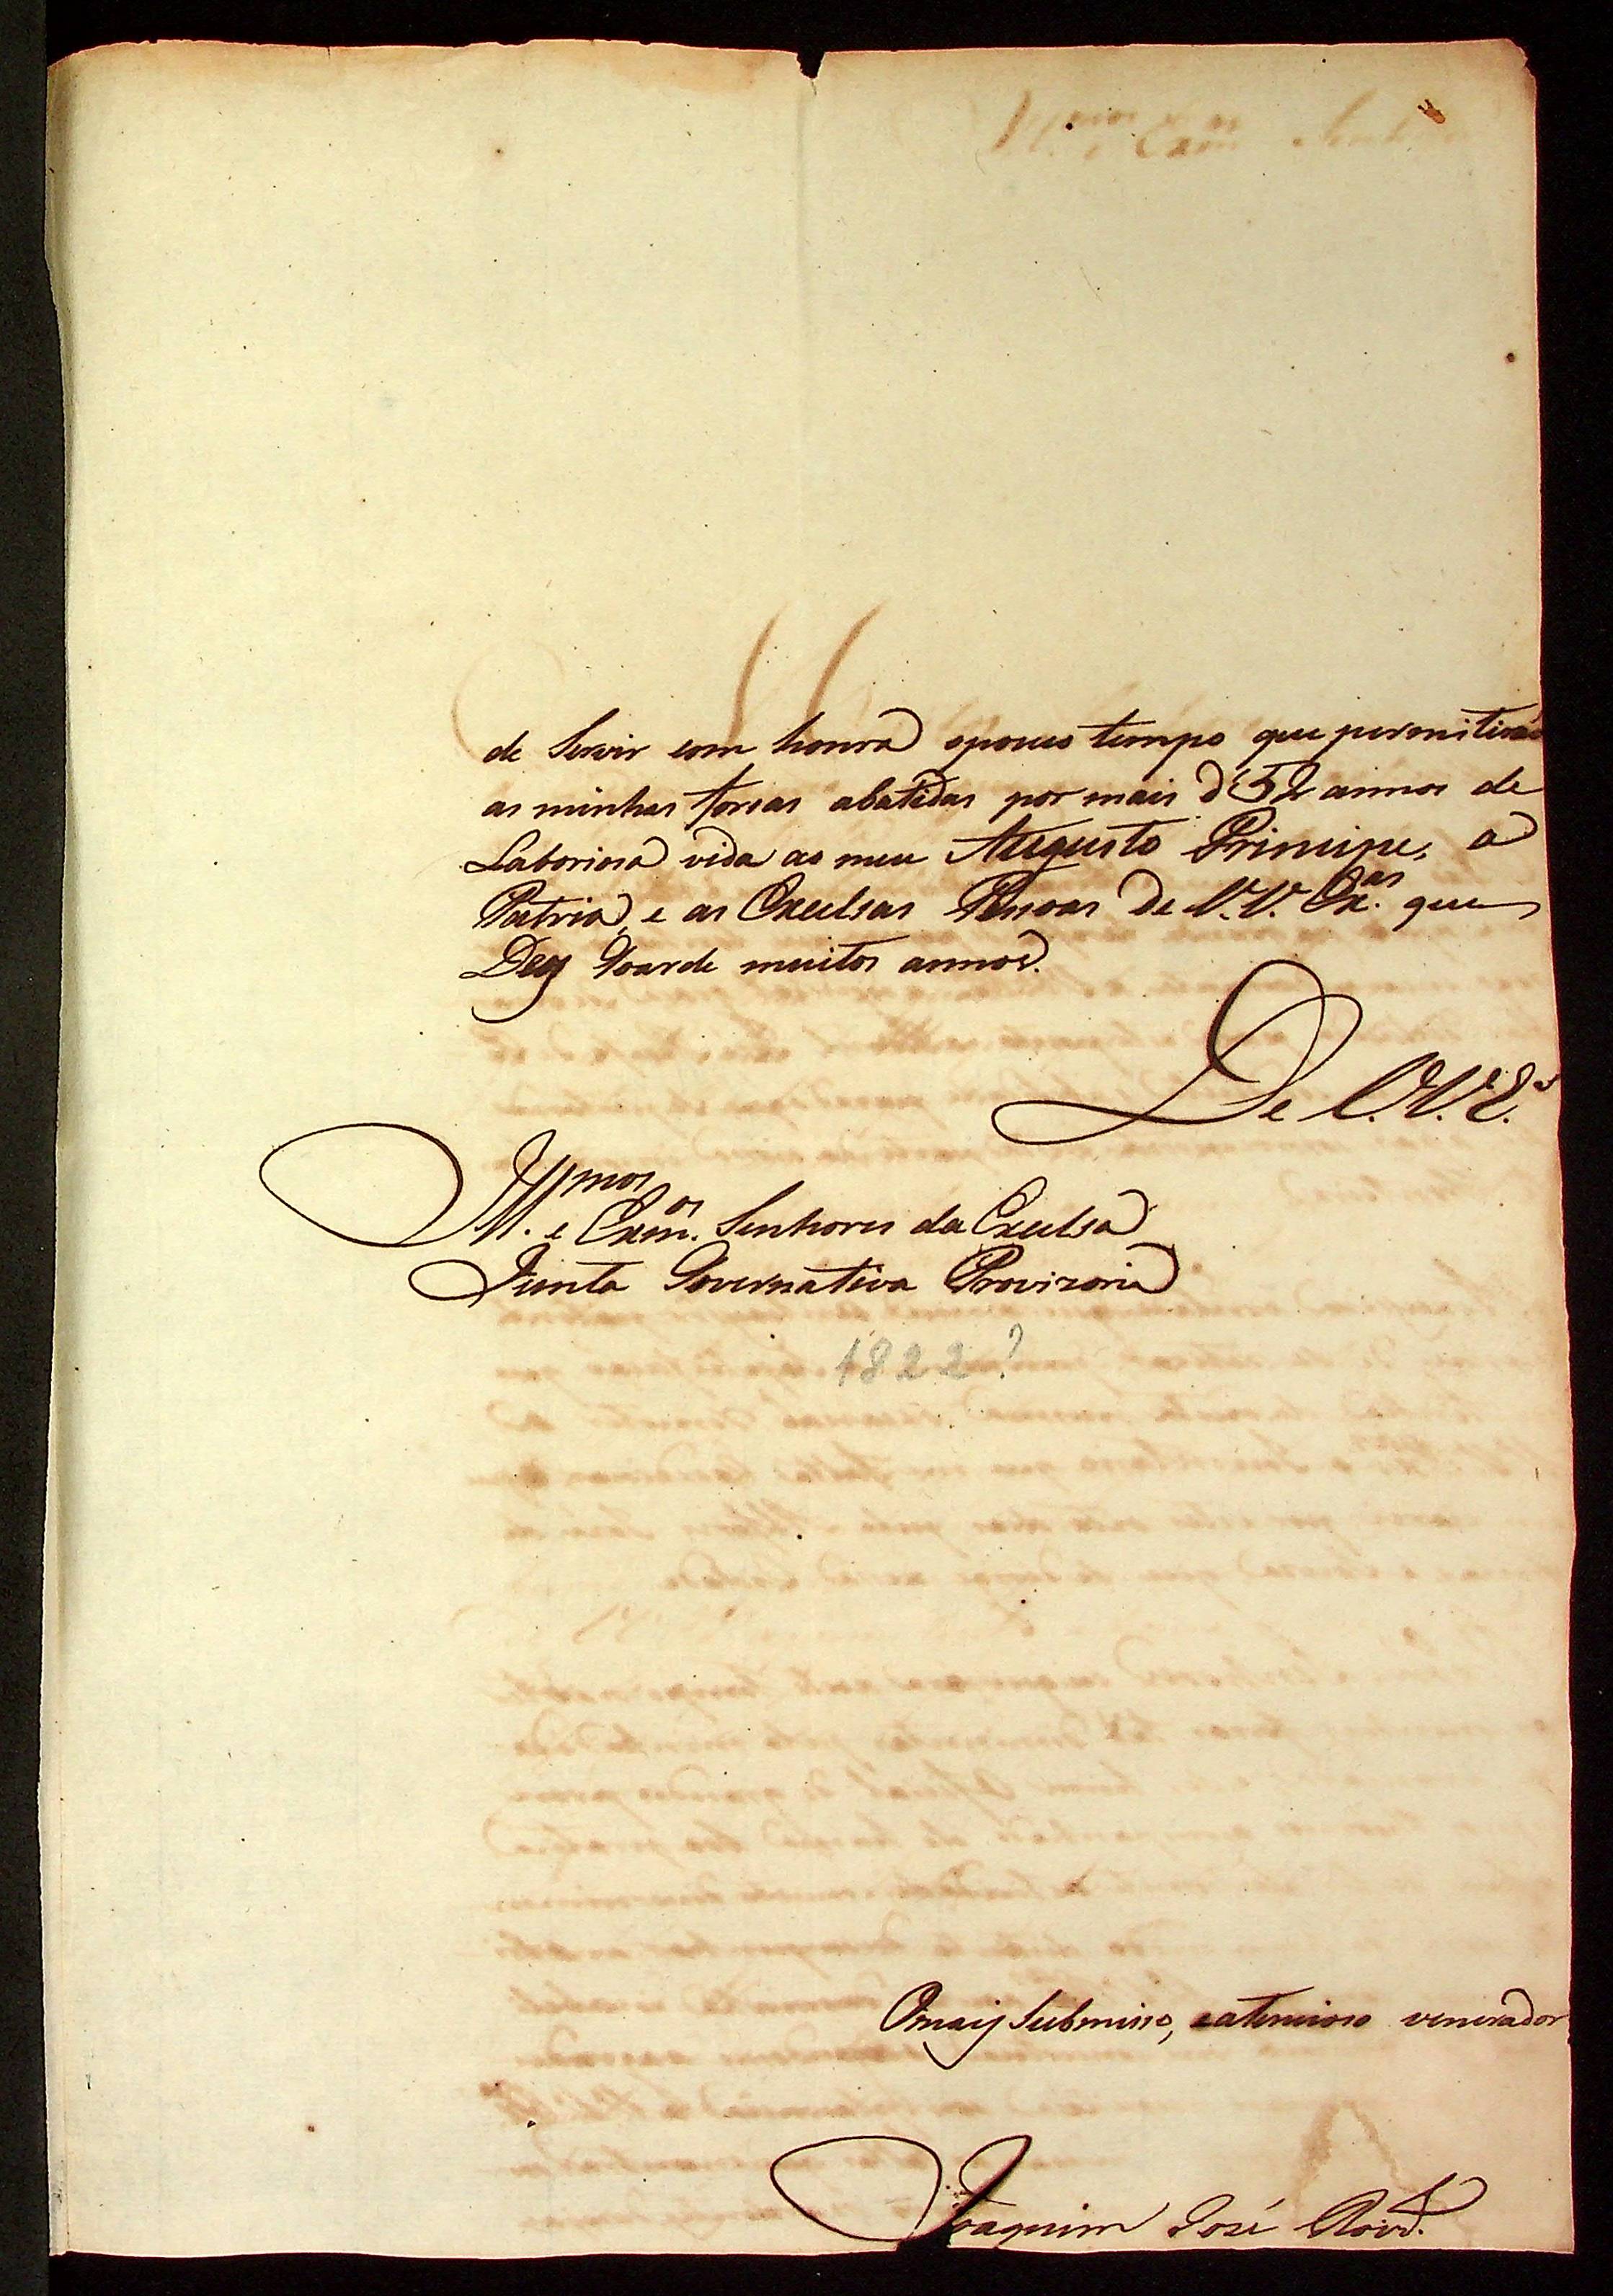 de Servir com honra opouco tempo que permitirão
as minhas forsas abatidas por mais d 52 annos de
Laboriosa vida ao meu Augusto Principe, a
Patria, e as Excelsas Pessoas de V.V. Ex.as que
Deos Goarde muitos annos.
De V.V.E.s
Ill.mos e Exm.os Senhores da Excelsa
Junta Governativa Provizoria
1822?
Omais Submisso, eatencioso venerador
Joaquim José Roiz.